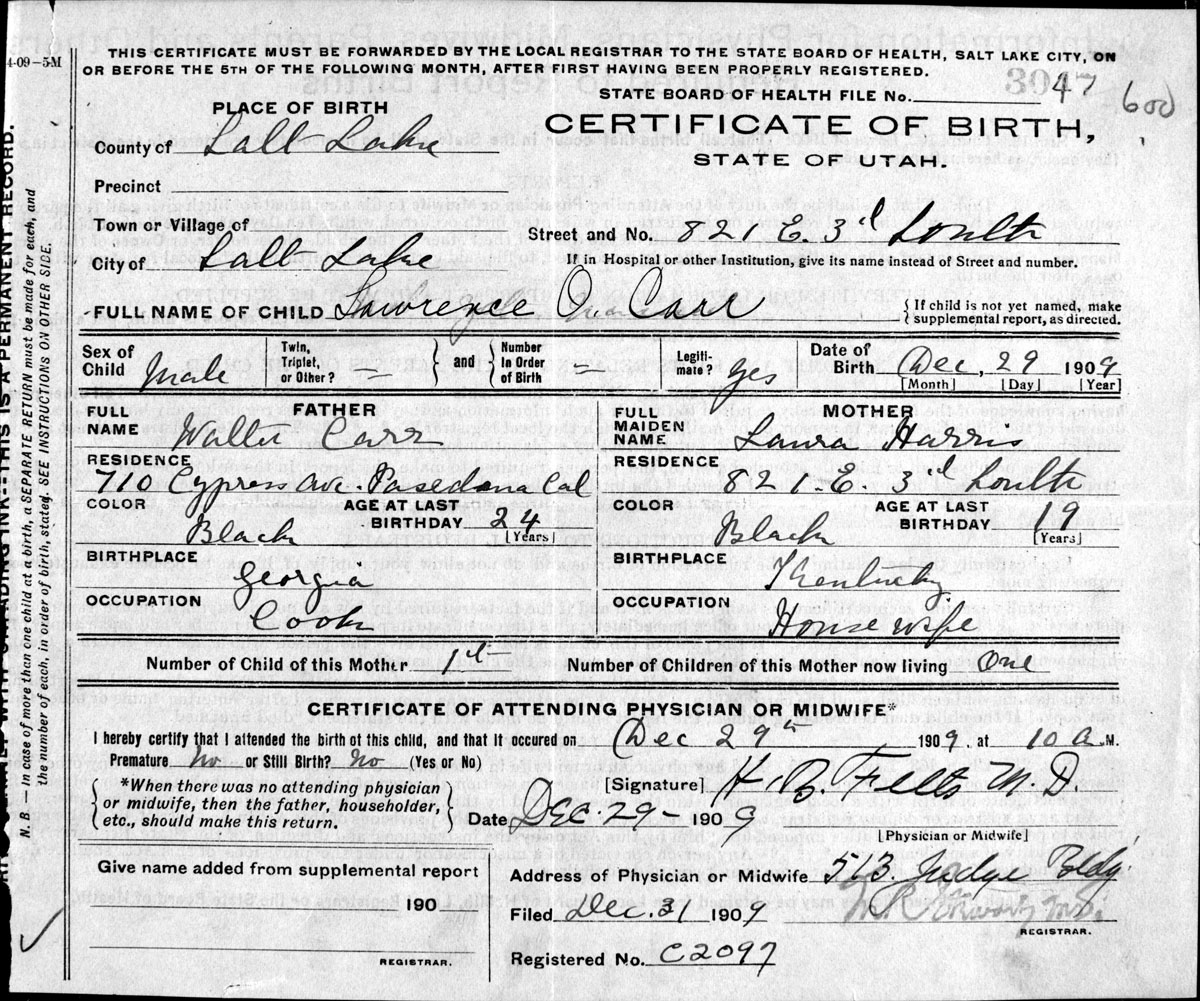 THIS CERTIFICATE MUST BE FORWARDED BY THE LOCAL REGISTRAR TO THE STATE BOARD OF HEALTH, SALT LAKE CITY, ON
4-09-5-M
OR BEFORE THE 5TH OF THE FOLLOWING MONTH, AFTER FIRST HAVING BEEN PROPERLY REGISTERED.
STATE BOARD OF HEALTH FILE No. 47
3047
600
PLACE OF BIRTH
CERTIFICATE OF BIRTH,
STATE OF UTAH.
County of Salt Lake
Precinct
Town or Village of
Street and No. 821 E. 3d South
City of Salt Lake
If in Hospital or other Institution, give its name instead of Street and number.
FULL NAME OF CHILD Lawrence Carr
{ If child is not yet named, make supplemental report, as directed.
Sex of Child Male
Twin, Triplet, or Other? =
} and {
Number in Order of Birth =
Legiti-mate? yes
Date of Birth Dec, 29 1909
[Month] [Day] [Year]
FATHER
FULL NAME Walter Carr
RESIDENCE
710 Cypress Ave. Pasedena Cal
COLOR Black
AGE AT LAST BIRTHDAY 24 [Years]
BIRTHPLACE Georgia
OCCUPATION Cook
MOTHER
FULL MAIDEN NAME Laura Harris
RESIDENCE
821-E. 3d South
COLOR Black
AGE AT LAST BIRTHDAY 19 [Years]
BIRTHPLACE Kentucky
OCCUPATION House wife
Number of Child of this Mother 1st
Number of Children of this Mother now living One
CERTIFICATE OF ATTENDING PHYSICIAN OR MIDWIFE*
I hereby certify that I attended the birth of this child, and that it occured on Dec 29th 1909, at 10 a M.
Premature No or Still Birth? No (Yes or No)
{ *When there was no attending physician or midwife, then the father, householder, etc., should make this return. }
[Signature] H. B. Felts M. D.
Date Dec. 29- 1909
[Physician or Midwife]
Give name added from supplemental report
190
REGISTRAR.
Address of Physician or Midwife 513. Judge Bldg.
Filed Dec. 31 1909
REGISTRAR.
Registered No. C2097
WITH UNFADING INK-THIS IS A PERMANENT RECORD.
N. B. — In case of more than one child at a birth, a SEPARATE RETURN must be made for each, and
the number of each, in order of birth, stated. SEE INSTRUCTIONS ON OTHER SIDE.